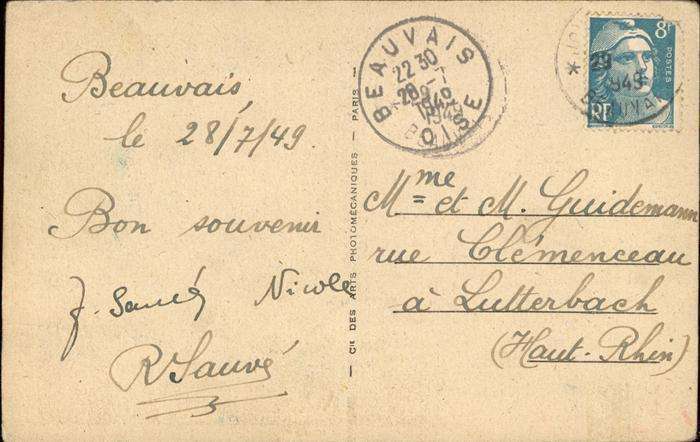 Beauvais
le 28/7/49.
Bon souvenir
J. Sauvé Nicole
R Sauvé
— Cie DES ARTS PHOTOMÉCANIQUES — PARIS —
BEAUVAIS
22 30
28 - 7
1949
OISE
8F
POSTES
RF
29
1949
Mme et M. Guidemann
rue Clémenceau
à Lutterbach
(Haut-Rhin)